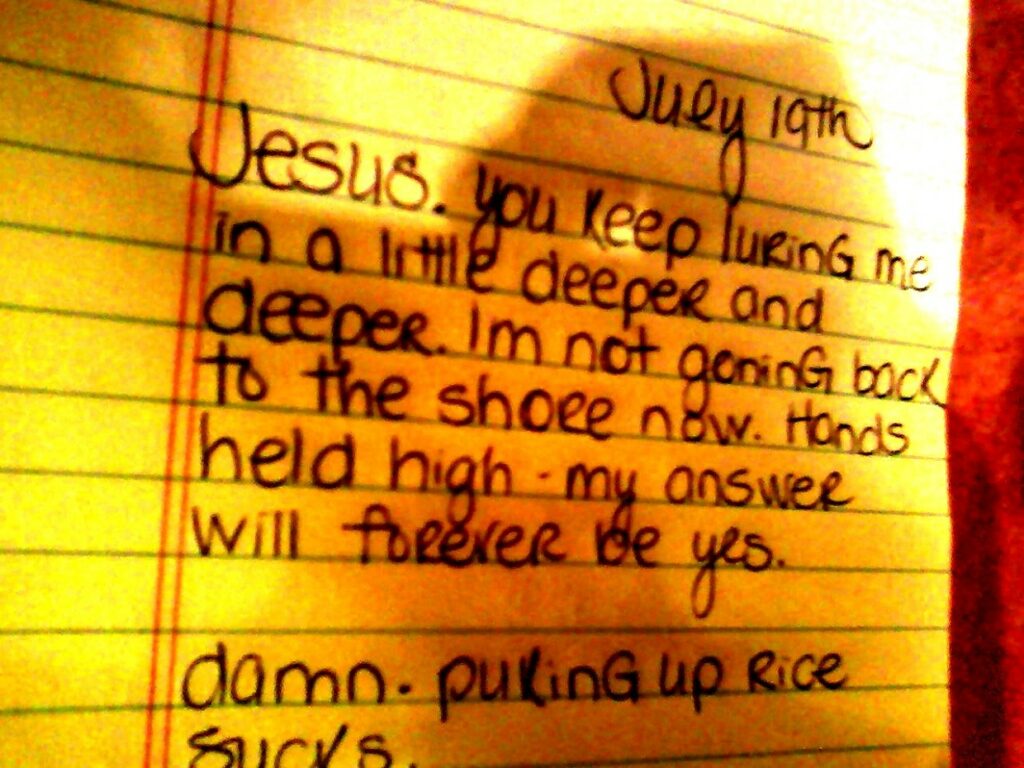 July 19th
Jesus. you keep luring me
in a little deeper and
deeper. Im not goning back
to the shore now. Hands
held high - my answer
will forever be yes.
damn. puking up Rice
sucks.